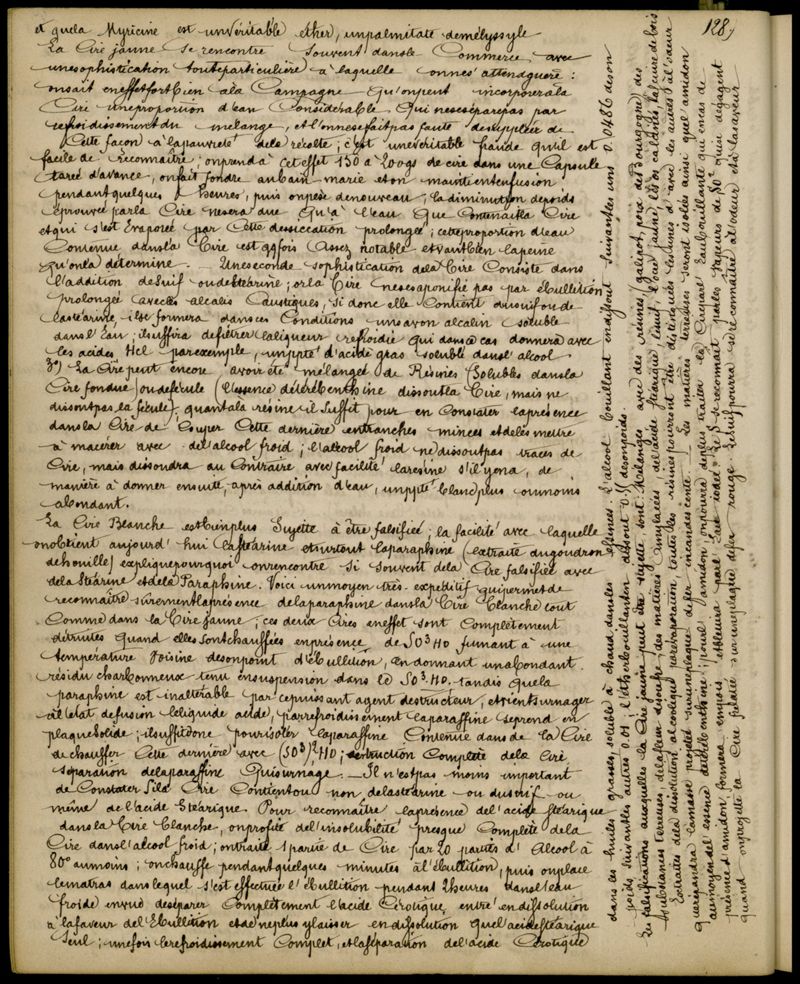 128,
et que la Myricine est un véritable ether, un palmitate de mélyssyle
La Cire jaune se rencontre souvent dans le Commerce avec
une sophistication toute particulière à laquelle on ne s'attend guère :
on sait en effet fort bien à la Campagne qu'on peut incorporer à la
Cire une proportion d'eau Considérable qui ne se sépare pas par
refroidissement du mélange, et l'on ne se fait pas faute de suppléer de
Cette façon à la pauvreté de la récolte ; c'est une véritable fraude qu'il est
facile de reconnaître ; on prend à cet effet 150 à 200gs de cire dans une Capsule
tarée d'avance, on fait fondre au bain marie et on maintient en fusion
pendant quelques heures, puis on pèse de nouveau ; la diminution de poids
éprouvée par la Cire ne sera due qu'à l'eau que Contenait la Cire
et qui s'est évaporée par Cette dessiccation prolongée ; cette proportion d'eau
Contenue dans la Cire est qqfois assez notable et vaut bien la peine
qu'on la détermine. Une seconde sophistication de la Cire Consiste dans
l'addition de suif ou de stéarine ; or la Cire ne se saponifie pas par ébullition
prolongée avec les alcalis Caustiques, si donc elle Contient du suif ou de
la stéarine, il se formera dans ces Conditions un savon alcalin soluble
dans l'eau ; il suffira de filtrer la liqueur refroidie qui dans ce cas donnera avec
les acides Hcl par exemple, un ppté d'acide gras soluble dans l'alcool
3°) La Cire peut encore avoir été mélangée de Résines (solubles dans la
Cire fondue) ou de fécule (l'essence de térébenthine dissout la Cire, mais ne
dissout pas la fécule), quant à la résine il suffit pour en Constater la présence
dans la Cire de Couper Cette dernière en tranches minces et de les mettre
à macérer avec de l'alcool froid ; l'alcool froid ne dissout pas traces de
Cire, mais dissoudra au Contraire avec facilité la résine s'il y en a, de
manière à donner ensuite, après addition d'eau, un ppté blanc plus ou moins
abondant.
La Cire Blanche est bien plus Sujette à être falsifiée ; la facilité avec laquelle
on obtient aujourd'hui la stéarine et surtout la paraphine (extraite du goudron
de houille) explique pourquoi on rencontre si souvent de la Cire falsifiée avec
de la Stéarine et de la Paraphine. Voici un moyen très-expéditif qui permet de
reconnaître sûrement la présence de la paraphine dans la Cire blanche tout
Comme dans la Cire jaune ; ces deux Cires en effet sont Complètement
détruites quand elles sont chauffées en présence de SO3HO fumant à une
température Voisine de son point d'Ébullition, en donnant un abondant
résidu charbonneux tenu en suspension dans le SO3.HO. tandis que la
paraphine est inaltérable par ce puissant agent destructeur, et vient surnager
à l'état de fusion le liquide acide, par refroidissement la paraffine se prend en
plaque solide ; il suffit donc pour isoler la paraffine Contenue dans de la Cire
de chauffer Cette dernière avec (SO3)2HO ; destruction Complète de la Cire
séparation de la paraffine qui surnage. — Il n'est pas moins important
de Constater si la Cire Contient ou non de la stéarine ou du suif ou
même de l'acide Stéarique. Pour reconnaître la présence de l'acide Stéarique
dans la Cire Blanche, on profite de l'insolubilité presque Complète de la
Cire dans l'alcool froid ; on traite 1 partie de Cire par 20 parties d'Alcool à
80° au moins ; on chauffe pendant quelques minutes à l'ébullition, puis on place
le matras dans lequel s'est effectuée l'ébullition pendant 2 heures dans l'eau
froide en vue de séparer Complètement l'acide Cérotique, entré en dissolution
à la faveur de l'Ebullition et de ne plus y laisser en dissolution que l'acide Stéarique
Seul ; une fois le refroidissement Complet, et la séparation de l'acide Cérotique
dans les huiles grasses, soluble à chaud dans les essences. L'alcool bouillant en dissout suivant les uns 0.0486 de son
poids suivant les autres 0.01 ; l'éther bouillant en dissout 0.5 de son poids.
Les falsifications auxquelles la Cire jaune peut être sujette, sont : Mélanges avec des résines (galipot, poix de Bourgogne) des
Substances terreuses, de la fleur de soufre, des matières amylacées, de l'acide stéarique, le suif, l'ocre jaune, les os calcinés, la sciure de bois
Extraites de la dissolution alcoolique par évaporation, toutes les résines pourront être distinguées les unes d'avec les autres à l'odeur
que répandra la masse projetée sur une plaque de fer incandescente. — Les matières terreuses seront isolées ainsi que l'amidon
au moyen de l'essence de térébenthine ; pour l'amidon on pourra de plus traiter la Cire par l'Eau bouillante qui en cas de
présence d'amidon, formera empois et bleuira par l'Eau iodée. Le S se reconnaît par les vapeurs de SO2 qui se dégagent
quand on projette la Cire falsifiée sur une plaque de fer rouge. Le suif pourra se reconnaître à l'odeur et à la saveur